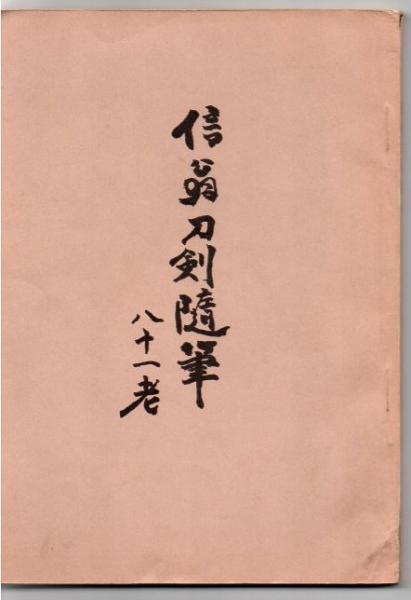 信翁刀剣隨筆
八十一老